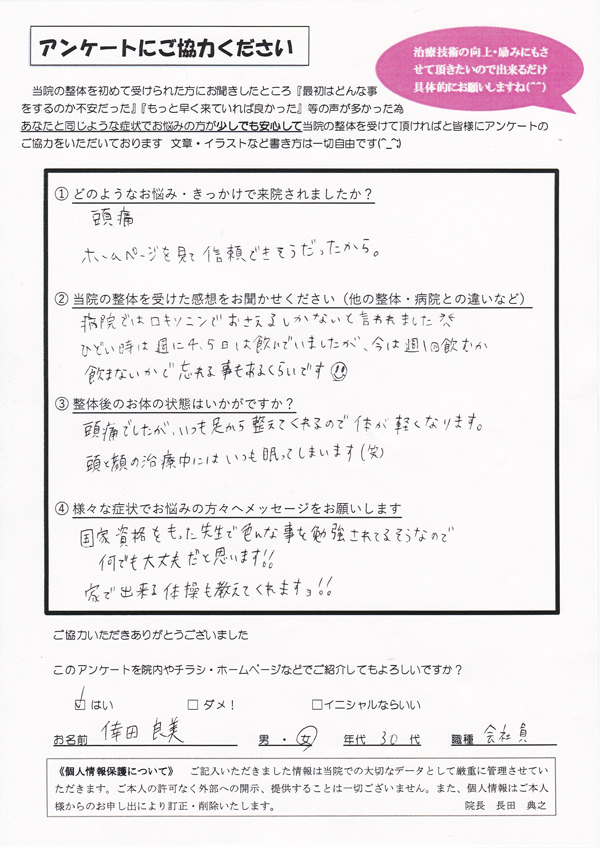 アンケートにご協力ください
治療技術の向上・励みにもさ
せて頂きたいので出来るだけ
具体的にお願いしますね(^^)
当院の整体を初めて受けられた方にお聞きしたところ『最初はどんな事
をするのか不安だった』『もっと早く来ていれば良かった』等の声が多かった為
あなたと同じような症状でお悩みの方が少しでも安心して当院の整体を受けて頂ければと皆様にアンケートの
ご協力をいただいております　文章・イラストなど書き方は一切自由です(^_^;)
① どのようなお悩み・きっかけで来院されましたか？
頭痛
ホームページを見て信頼できそうだったから。
② 当院の整体を受けた感想をお聞かせください（他の整体・病院との違いなど）
病院ではロキソニンでおさえるしかないと言われました
ひどい時は週に4,5日は飲んでいましたが、今は週1回飲むか
飲まないかで忘れる事もあるくらいです
③ 整体後のお体の状態はいかがですか？
頭痛でしたが、いつも足から整えてくれるので体が軽くなります。
頭と顔の治療中にはいつも眠ってしまいます(笑)
④ 様々な症状でお悩みの方々へメッセージをお願いします
国家資格をもった先生で色んな事を勉強されてるそうなので
何でも大丈夫だと思います!!
家で出来る体操も教えてくれますョ!!
ご協力いただきありがとうございました
このアンケートを院内やチラシ・ホームページなどでご紹介してもよろしいですか？
☑ はい　□ ダメ！　□イニシャルならいい
お名前　倖田 良美　男 ・ 女　年代 30 代　職種 会社員
《個人情報保護について》　ご記入いただきました情報は当院での大切なデータとして厳重に管理させてい
ただきます。ご本人の許可なく外部への開示、提供することは一切ございません。また、個人情報はご本人
様からのお申し出により訂正・削除いたします。　院長　長田　典之